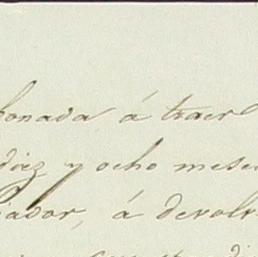 bonada á traer
diez y ocho mese
ador, á devolv